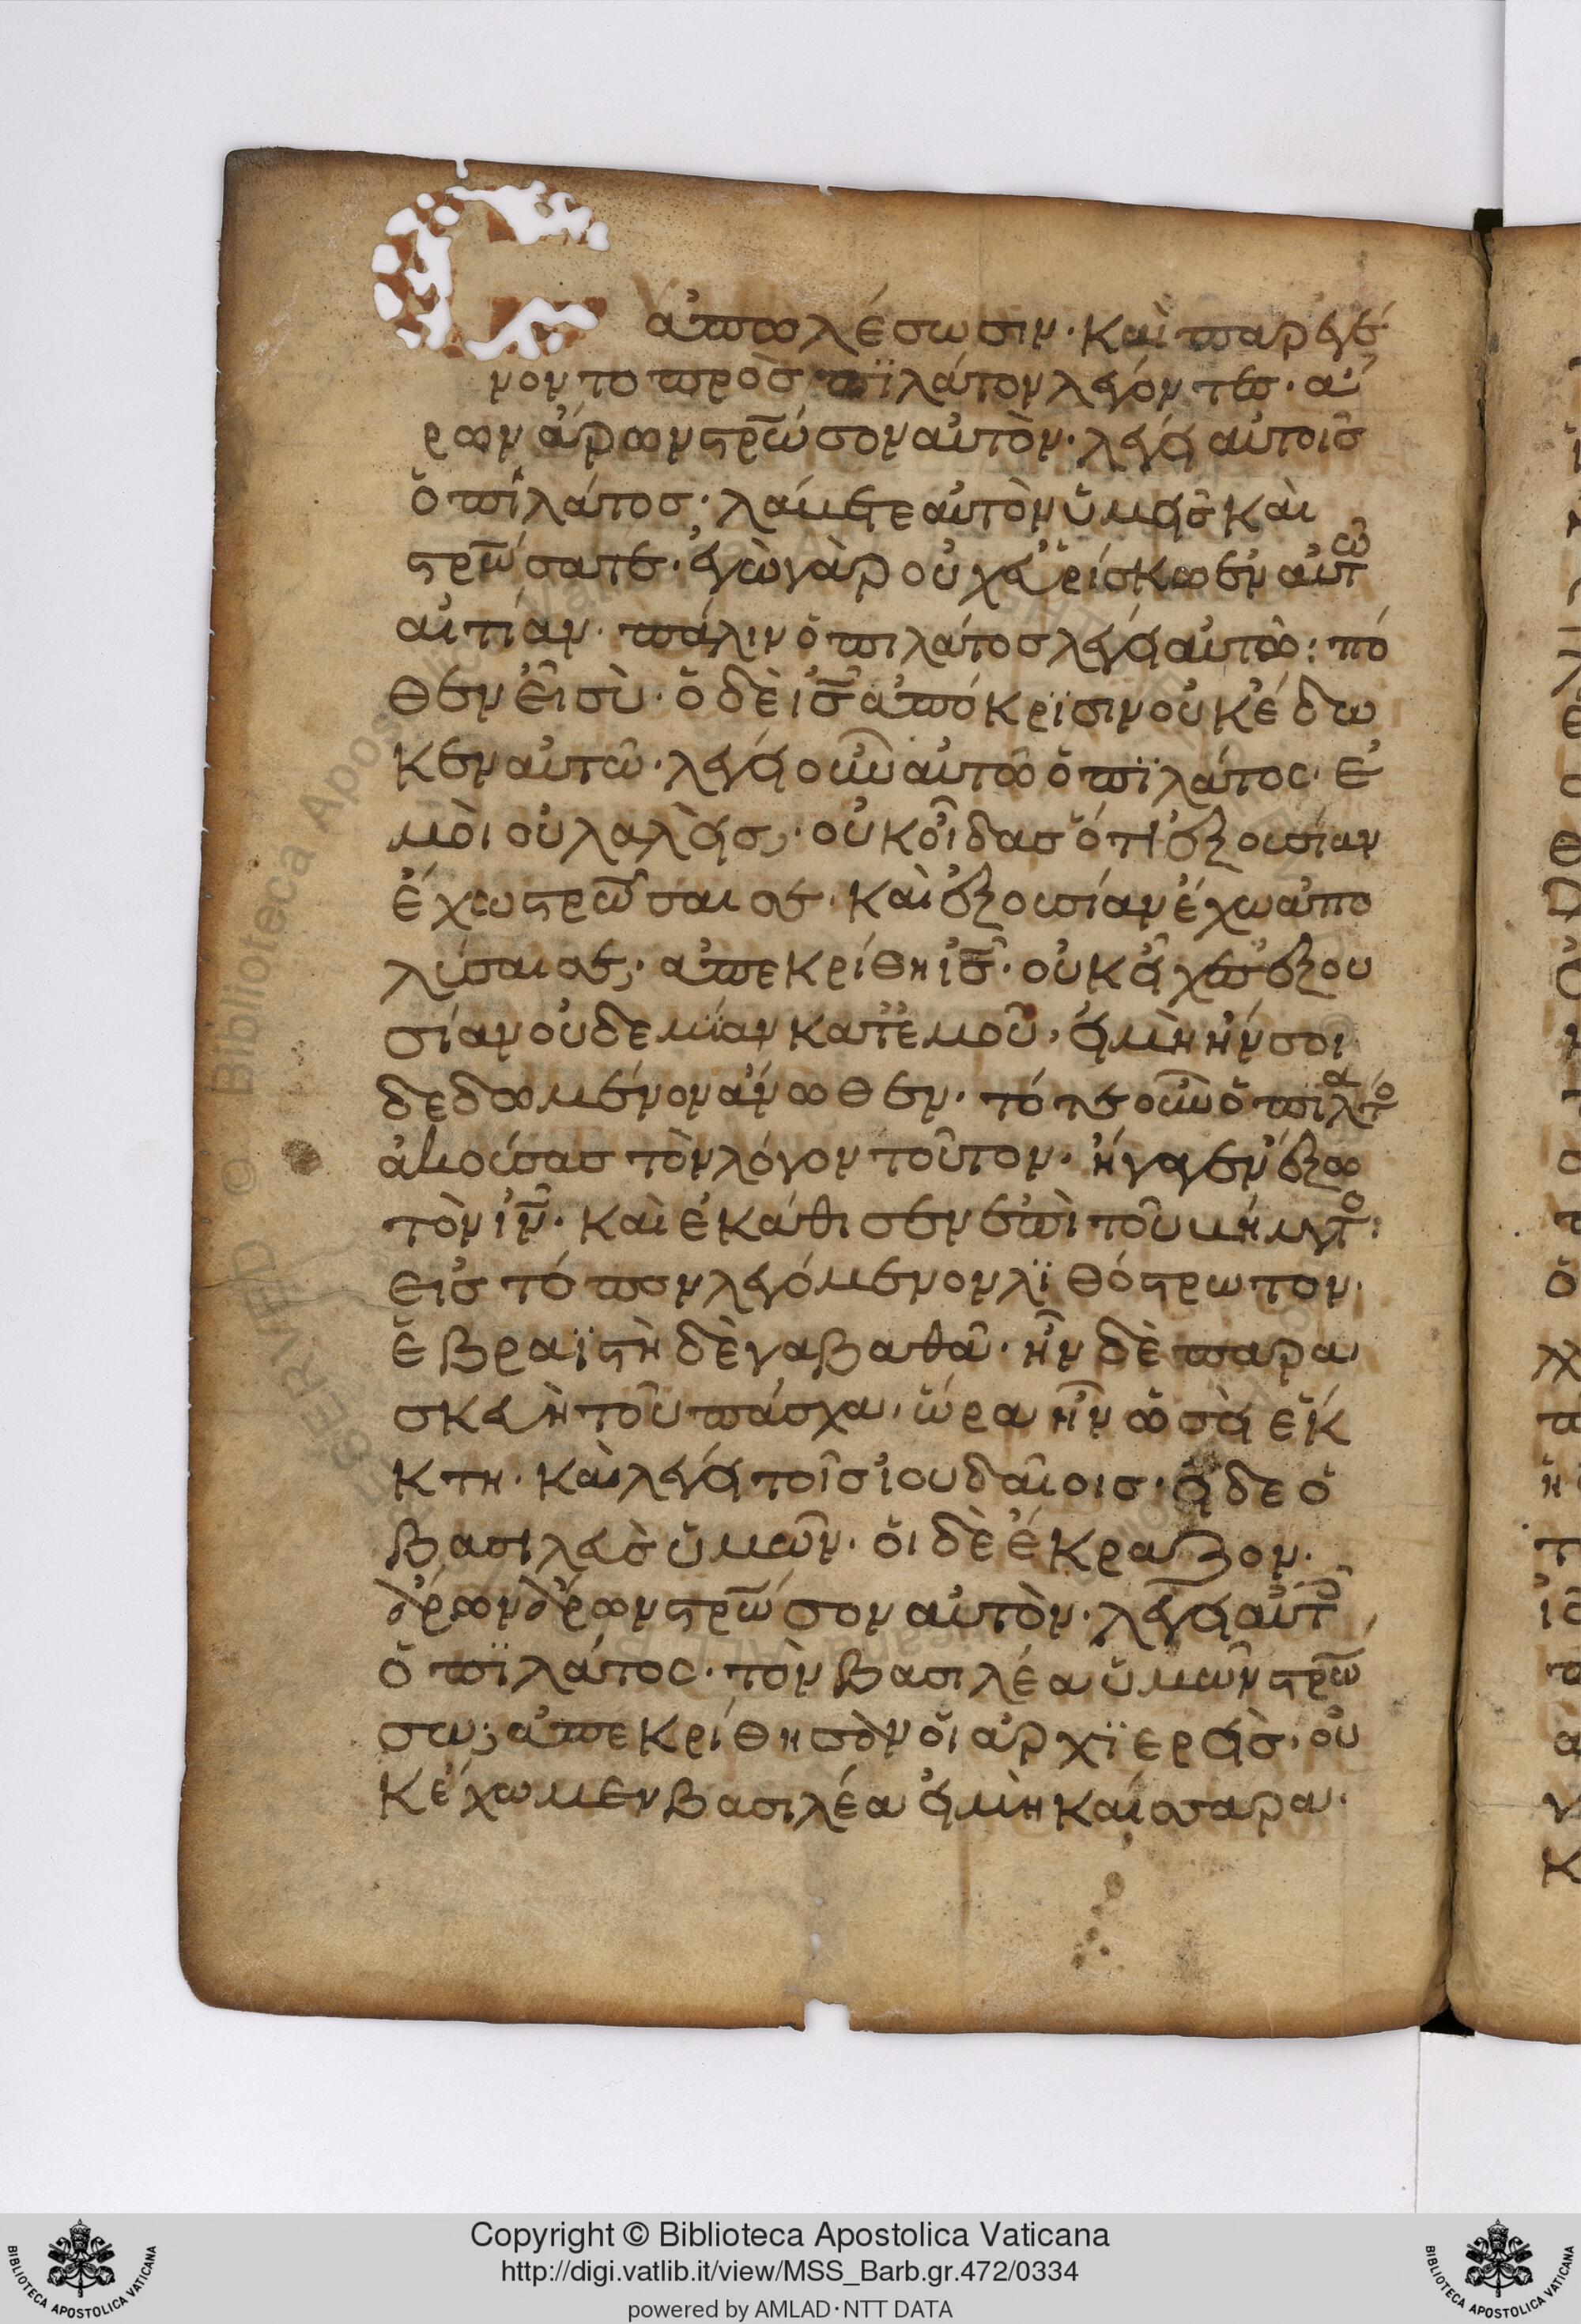 ἀπωλέσωσιν· καὶ παρεγέ
νοντο πρὸσ πϊλάτον λεγόντεσ· ἆ
ρον ἆρον στρ̅ώσον αὐτὸν· λέγει αὐτοῖσ
ὁ πϊλάτοσ· λάβετε αὐτὸν ὑμεῖσ καὶ
στρ̅ώσατε· ἐγὼ γὰρ οὐχ εὑρίσκω ἐν αὐτῶ
αἰτίαν· πάλιν ὁ πιλάτοσ λέγει αὐτῶ· πό
θεν εἶ σὺ· ὁ δὲ ἰσ̅ ἀπόκρϊσιν οὐκ ἔδω
κεν αὐτῶ· λέγει οὖν αὐτῶ ὁ πϊλάτοσ· ἐ
μοὶ οὐ λαλεῖσ; οὐκ οἶδασ ὅτι ἐξουσίαν
ἔχω στρ̅ῶσαι σε· καὶ ἐξουσίαν ἔχω ἀπο
λύσαι σε; ἀπεκρίθη ἰσ̅· οὐκ εἶχεσ ἐξου
σίαν οὐδεμϊάν κατ' ἐμοῦ, εἰ μὴ ἦν σοι
δεδωμένον ἄνωθεν· τότε οὖν ὁ πϊλάτο
ἀκούσασ τὸν λόγον τοῦτον· ἤγαγεν ἔξω
τὸν ἰν̅· καὶ ἐκάθισεν ἐπὶ τοῦ βήματο·
εἰσ τόπον λεγόμενον λϊθόστρωτον·
ἑβραϊστὴ δὲ γαβαθᾶ· ἦν δὲ παρα
σκευὴ τοῦ πάσχα, ὥρα ἦν ὡσεὶ ἕκ
κτη· καὶ λέγει τοῖσ ἰουδαίοισ· εἶδε ὁ
βασιλεὺσ ὑμῶν· οἱ δὲ ἔκραζον·
ἆρον ἆρον στρ̅ώσον αὐτὸν· λέγει αὐτοῖ
ὁ πϊλάτοσ· τὸν βασιλέα ὑμῶν στρ̅ώ
σω; ἀπεκρίθησαν οἱ ἀρχϊερεῖσ· οὐ
κ ἔχωμεν βασιλέα εἰ μὴ καίσαρα·
Copyright © Biblioteca Apostolica Vaticana
http://digi.vatlib.it/view/MSS_Barb.gr.472/0334
powered by AMLAD·NTT DATA
BIBLIOTECA APOSTOLICA VATICANA
BIBLIOTECA APOSTOLICA VATICANA